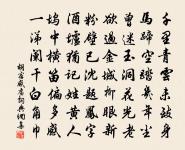 千里青雲未致身
馬蹄空踏幾年塵
曾迷玉洞花光老
欲過金城柳眼新
粉壁已沈題鳳字
酒壚猶記姓黃人
塢中橫笛偏多感
一涕闌干白角巾
胡宿感舊詩詞典網書